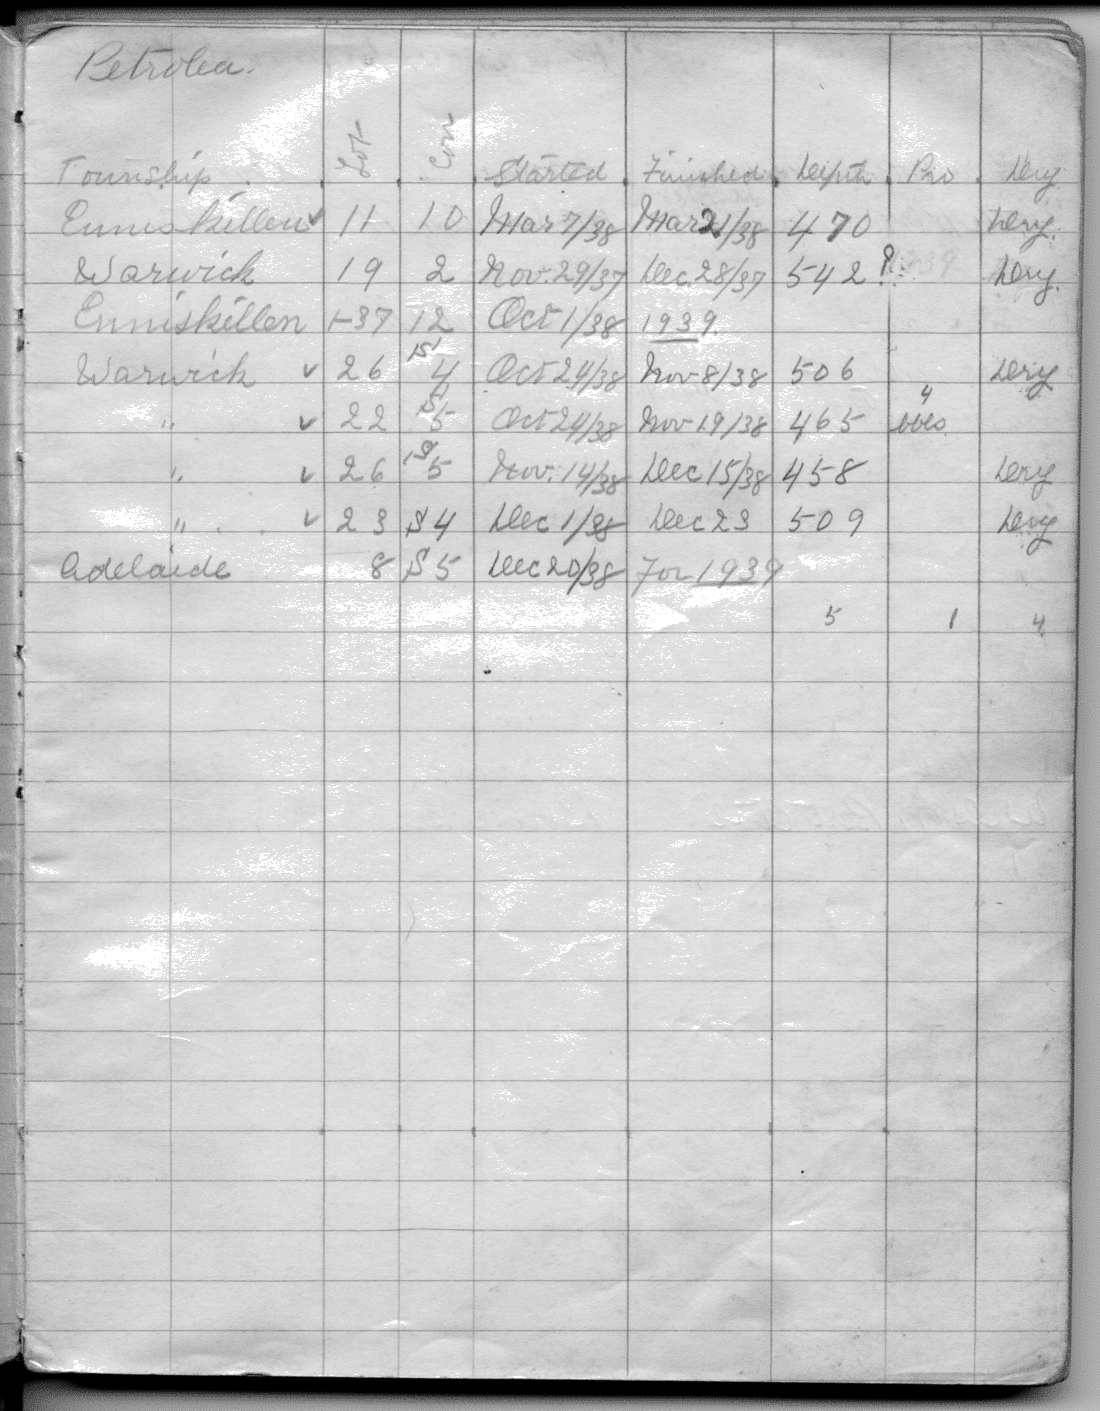 Petrolea.
Township Lot Con Started Finished Depth Pro Dry
Enniskillen ✓ 11 10 Mar 7/38 Mar 21/38 470 Dry.
Warwick 19 2 Nov. 29/37 Dec. 28/37 542 ? Dry.
Enniskillen 37 12 Oct 1/38 1939.
Warwick ✓ 26 4 Oct 24/38 Nov 8/38 506 Dry
" ✓ 22 5 Oct 24/38 Nov 19/38 465 4 bbls.
" ✓ 26 5 Nov. 14/38 Dec 15/38 458 Dry
" ✓ 23 S 4 Dec 1/38 Dec 23 509 Dry
Adelaide 8 S 5 Dec 20/38 For 1939
5 1 4